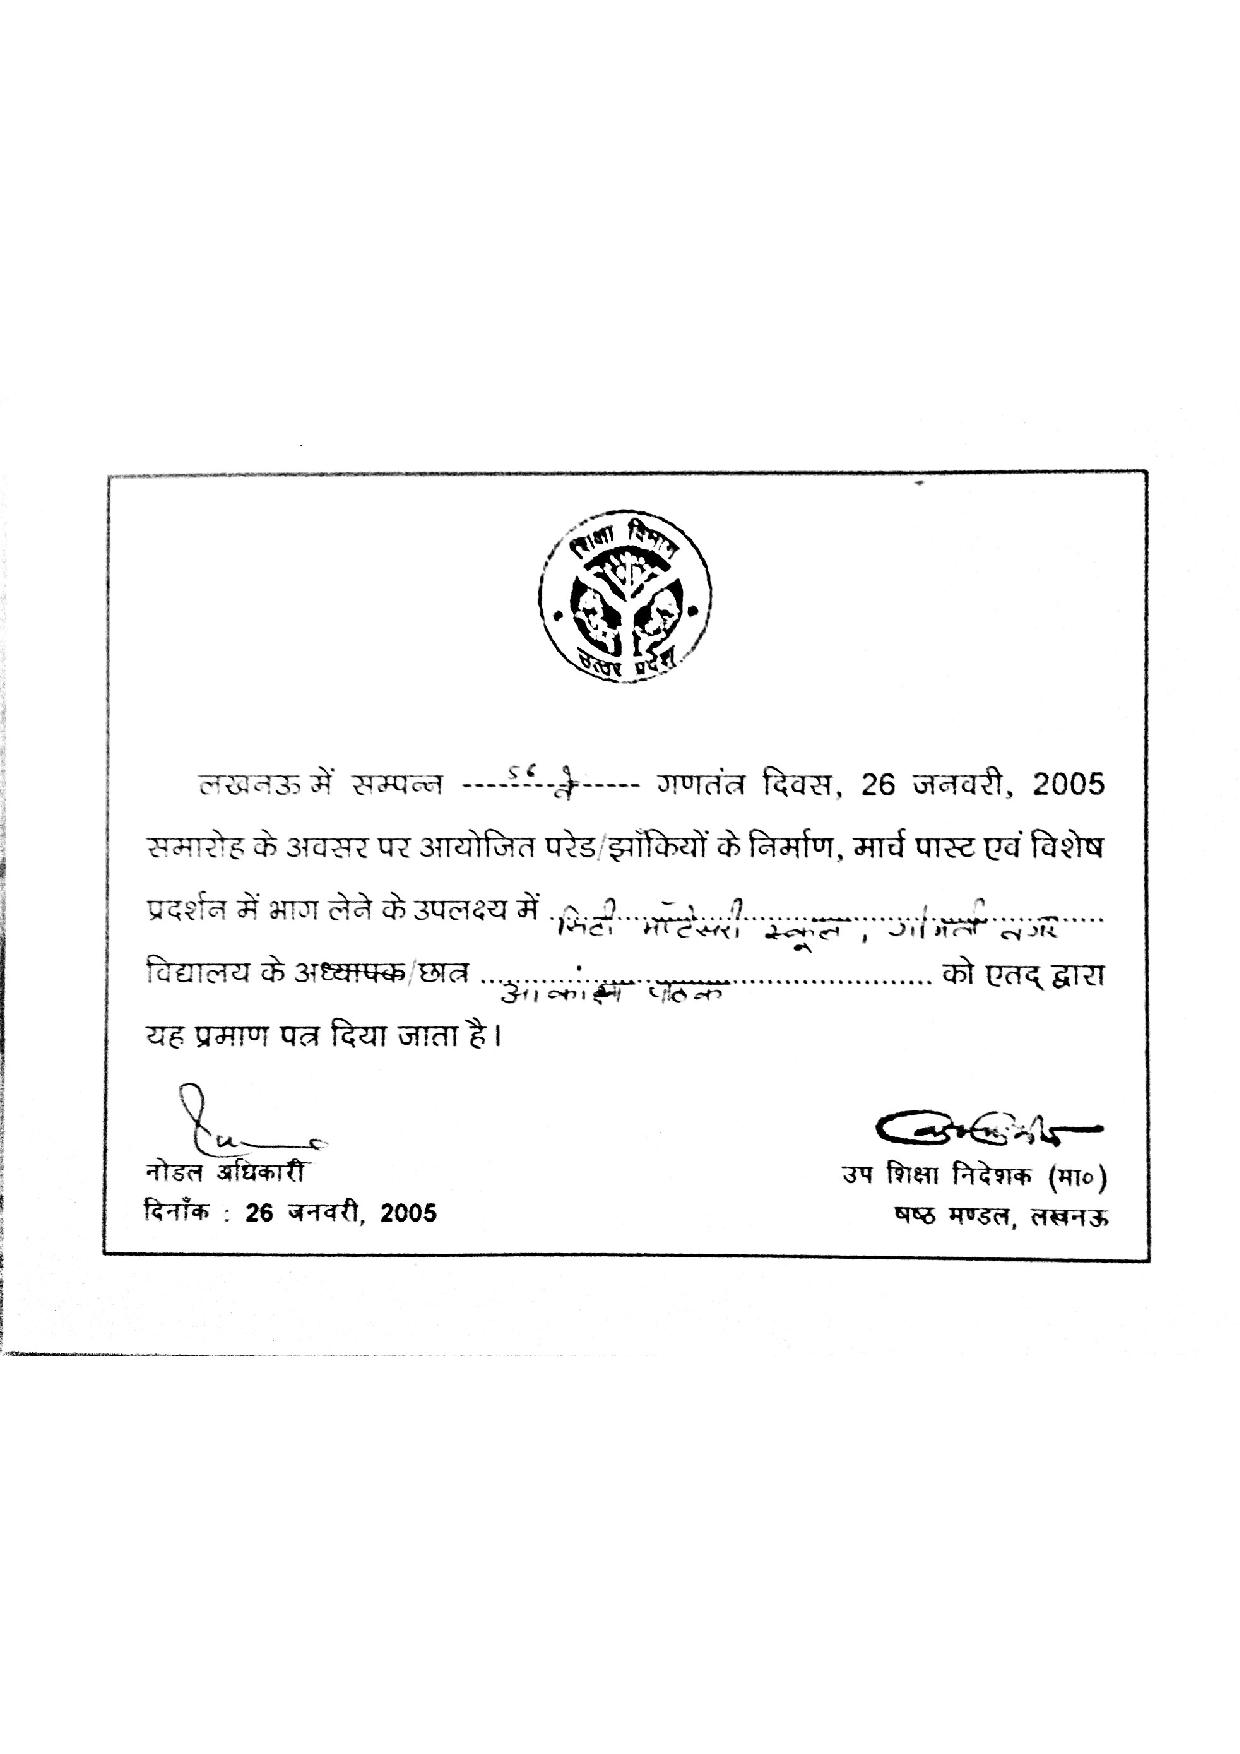 शिक्षा विभाग
उत्तर प्रदेश
लखनऊ में सम्पन्न ------56 वे------ गणतंत्र दिवस, 26 जनवरी, 2005
समारोह के अवसर पर आयोजित परेड/झाँकियों के निर्माण, मार्च पास्ट एवं विशेष
प्रदर्शन में भाग लेने के उपलक्ष्य में सिटी मांटेसरी स्कूल, गोमती नगर
विद्यालय के अध्यापक/छात्र आकांक्षा पाठक को एतद् द्वारा
यह प्रमाण पत्र दिया जाता है।
नोडल अधिकारी
दिनाँक : 26 जनवरी, 2005
उप शिक्षा निदेशक (मा०)
षष्ठ मण्डल, लखनऊ